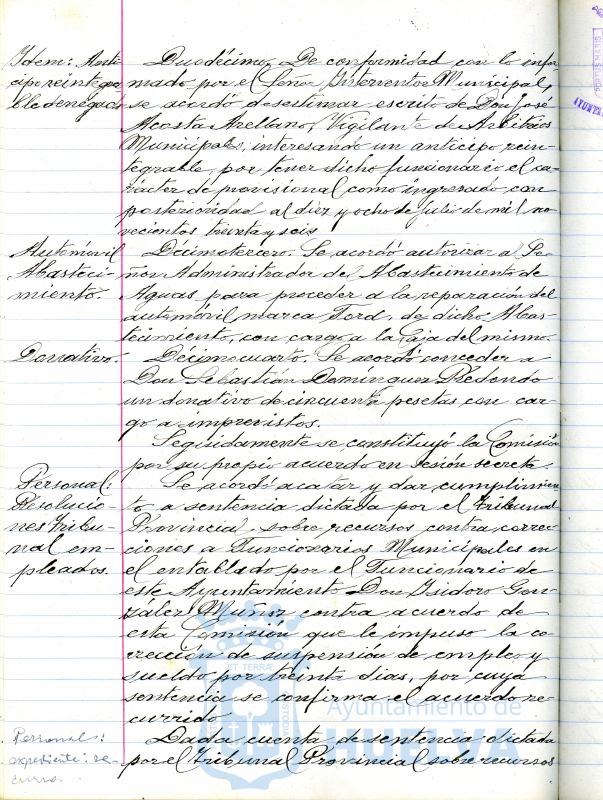 Idem: Anti
cipo reintegra
ble denegado
Duodécimo. De conformidad con lo infor
mado por el Señor Interventor Municipal,
se acordó desestimar escrito de Don José
Acosta Arellano, Vigilante de Arbitrios
Municipales, interesando un anticipo rein-
tegrable, por tener dicho funcionario el ca-
rácter de provisional como ingresado con
posterioridad al diez y ocho de Julio de mil no
vecientos treinta y seis
Automóvil
Abasteci-
miento.
Décimotercero. Se acordó autorizar al Se-
ñor Administrador del Abastecimiento de
Aguas para proceder a la reparación del
automóvil marca Ford, de dicho Abas-
tecimiento, con cargo a la Caja del mismo.
Donativo.
Décimocuarto. Se acordó conceder a
Don Sebastián Domínguez Redondo
un donativo de cincuenta pesetas con car-
go a imprevistos.
Seguidamente se constituyó la Comisión
por su propio acuerdo en sesión secreta.
Personal:
Resolucio-
nes Tribu-
nal em-
pleados.
Se acordó acatar y dar cumplimien
to a sentencia dictada por el tribunal
Provincial sobre recursos contra correc-
ciones a Funcionarios Municipales en
el entablado por el Funcionario de
este Ayuntamiento Don Isidoro Gon-
zález Muñoz contra acuerdo de
esta Comisión que le impuso la co-
rrección de suspensión de empleo y
sueldo por treinta dias, por cuya
sentencia se confirma el acuerdo re-
currido.
Personal:
expediente: re-
curso.
Dada cuenta de sentencia dictada
por el Tribunal Provincial sobre recursos
Ayuntamiento de
HUELVA